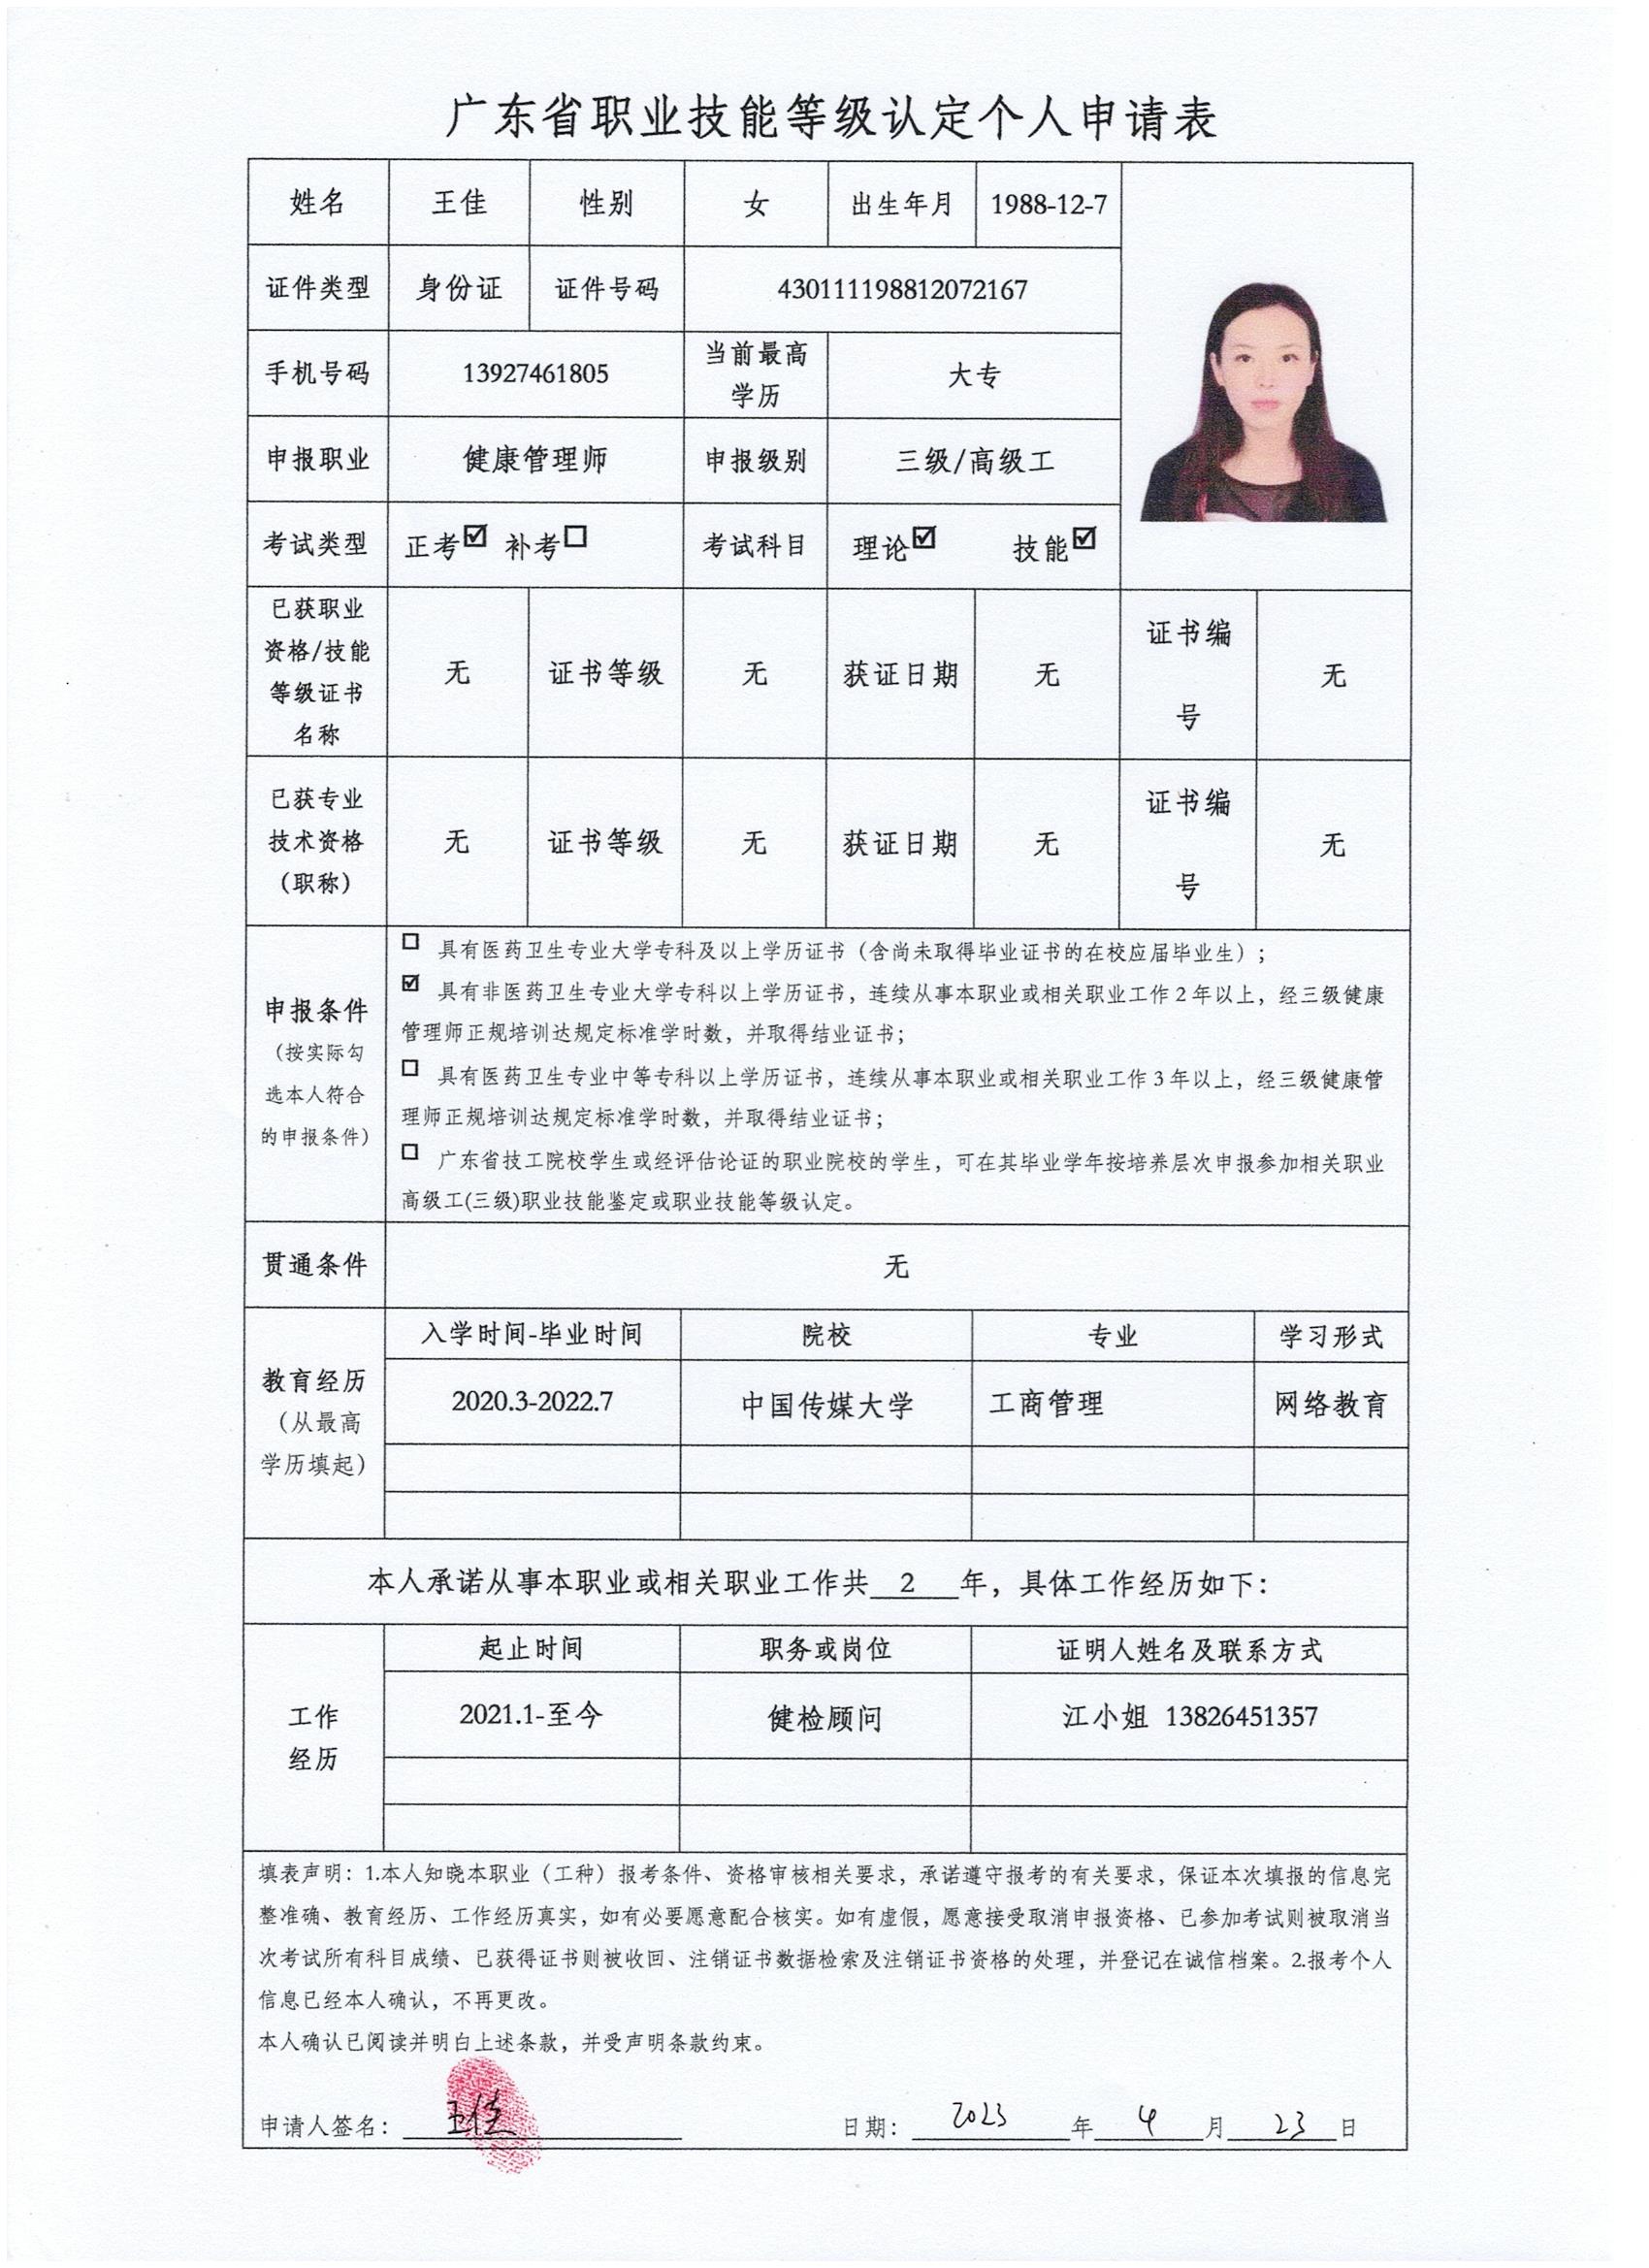 广东省职业技能等级认定个人申请表
姓名 王佳 性别 女 出生年月 1988-12-7
证件类型 身份证 证件号码 430111198812072167
手机号码 13927461805 当前最高
学历 大专
申报职业 健康管理师 申报级别 三级/高级工
考试类型 正考☑ 补考☐ 考试科目 理论☑ 技能☑
已获职业
资格/技能
等级证书
名称 无 证书等级 无 获证日期 无 证书编
号 无
已获专业
技术资格
（职称） 无 证书等级 无 获证日期 无 证书编
号 无
申报条件
（按实际勾
选本人符合
的申报条件）
☐ 具有医药卫生专业大学专科及以上学历证书（含尚未取得毕业证书的在校应届毕业生）；
☑ 具有非医药卫生专业大学专科以上学历证书，连续从事本职业或相关职业工作2年以上，经三级健康
管理师正规培训达规定标准学时数，并取得结业证书；
☐ 具有医药卫生专业中等专科以上学历证书，连续从事本职业或相关职业工作3年以上，经三级健康管
理师正规培训达规定标准学时数，并取得结业证书；
☐ 广东省技工院校学生或经评估论证的职业院校的学生，可在其毕业学年按培养层次申报参加相关职业
高级工(三级)职业技能鉴定或职业技能等级认定。
贯通条件 无
教育经历
（从最高
学历填起）
入学时间-毕业时间 院校 专业 学习形式
2020.3-2022.7 中国传媒大学 工商管理 网络教育
本人承诺从事本职业或相关职业工作共 2 年，具体工作经历如下：
工作
经历
起止时间 职务或岗位 证明人姓名及联系方式
2021.1-至今 健检顾问 江小姐 13826451357
填表声明：1.本人知晓本职业（工种）报考条件、资格审核相关要求，承诺遵守报考的有关要求，保证本次填报的信息完
整准确、教育经历、工作经历真实，如有必要愿意配合核实。如有虚假，愿意接受取消申报资格、已参加考试则被取消当
次考试所有科目成绩、已获得证书则被收回、注销证书数据检索及注销证书资格的处理，并登记在诚信档案。2.报考个人
信息已经本人确认，不再更改。
本人确认已阅读并明白上述条款，并受声明条款约束。
申请人签名： 王佳 日期： 2023 年 4 月 23 日